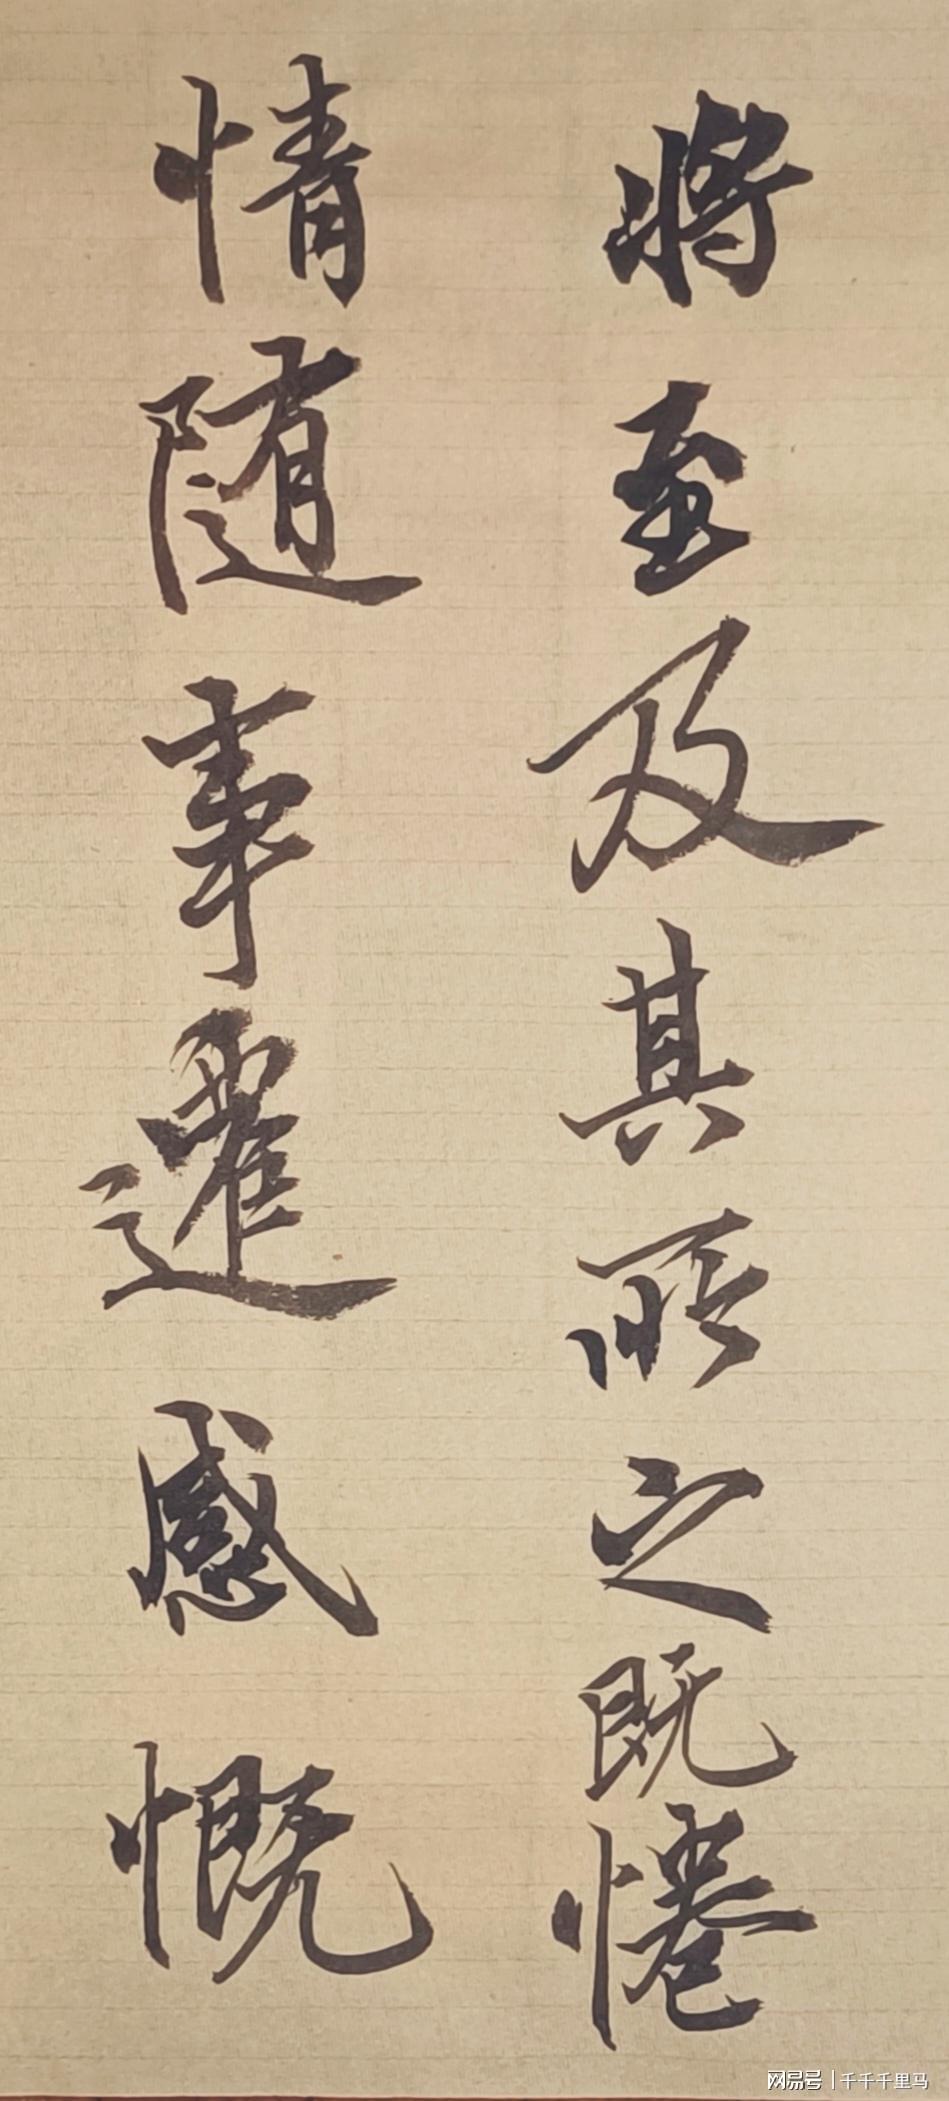 將至及其所之既惓
情随事遷感慨
网易号|千千千里马